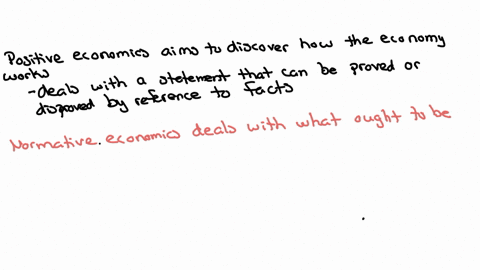 Positive economics aims to discover how the economy
works
-deals with a statement that can be proved or
disproved by reference to facts
Normative economics deals with what ought to be